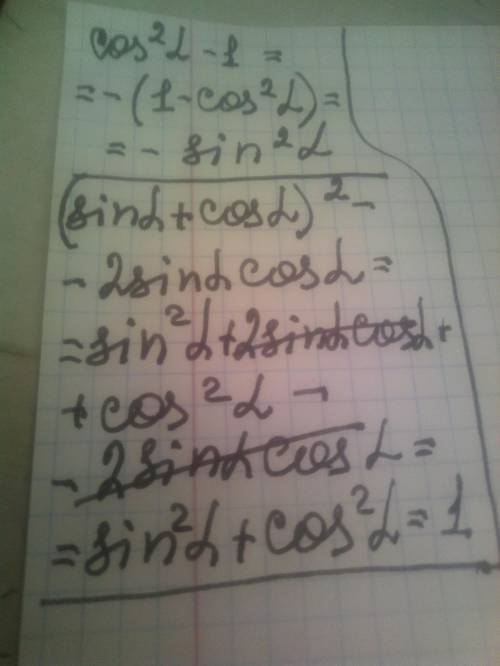 cos²α - 1 =
= - (1 - cos²α) =
= - sin²α
(sinα + cosα)² -
- 2sinα cosα =
= sin²α + 2sinα cosα +
+ cos²α -
- 2sinα cosα =
= sin²α + cos²α = 1